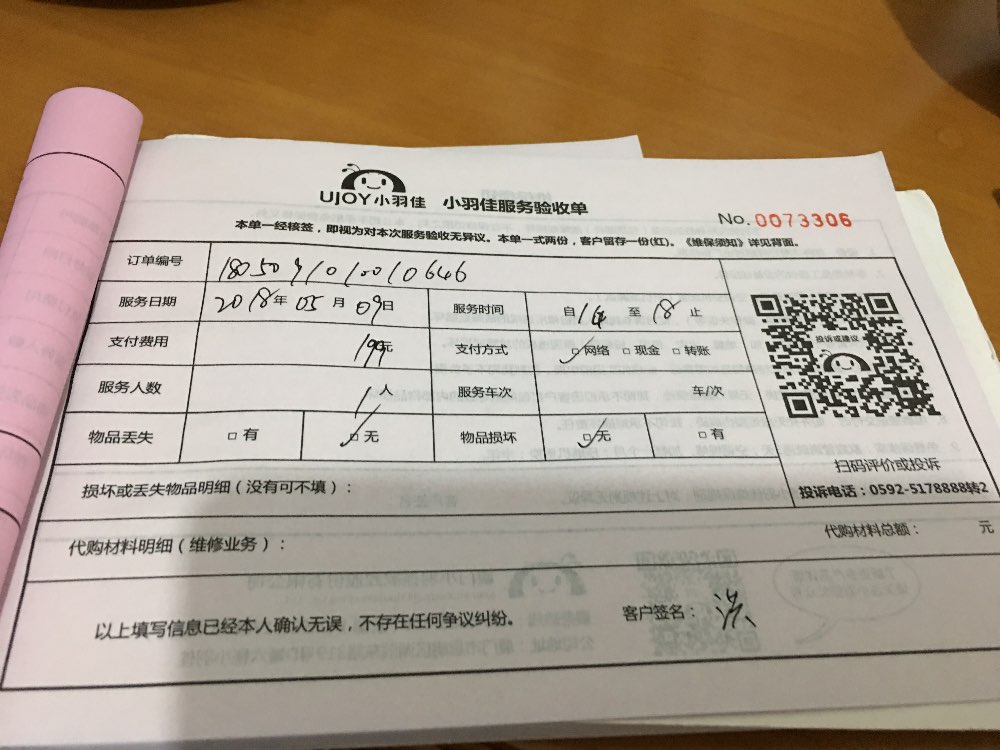 UJOY小羽佳 小羽佳服务验收单
No. 0073306
本单一经核签，即视为对本次服务验收无异议。本单一式两份，客户留存一份(红)。《维保须知》详见背面。
订单编号 18050910100010646
服务日期 2018年 05月 09日 服务时间 自14至18止
支付费用 199元 支付方式 □网络 □现金 □转账
投诉或建议
服务人数 1人 服务车次 车/次
物品丢失 □有 □无 物品损坏 □无 □有
扫码评价或投诉
损坏或丢失物品明细（没有可不填）：
投诉电话：0592-5178888转2
代购材料明细（维修业务）：
代购材料总额： 元
以上填写信息已经本人确认无误，不存在任何争议纠纷。
客户签名：